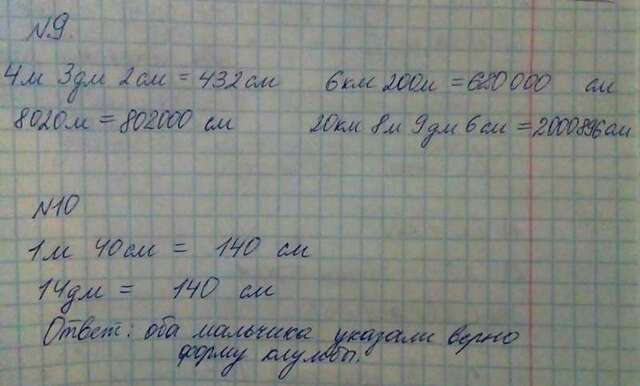 №9.
4м 3дм 2см = 432см 6км 200м = 620000 см
8020м = 802000 см 20км 8м 9дм 6см = 2000896см
№10
1м 40см = 140 см
14дм = 140 см
Ответ: оба мальчика указали верно
форму клумбы.